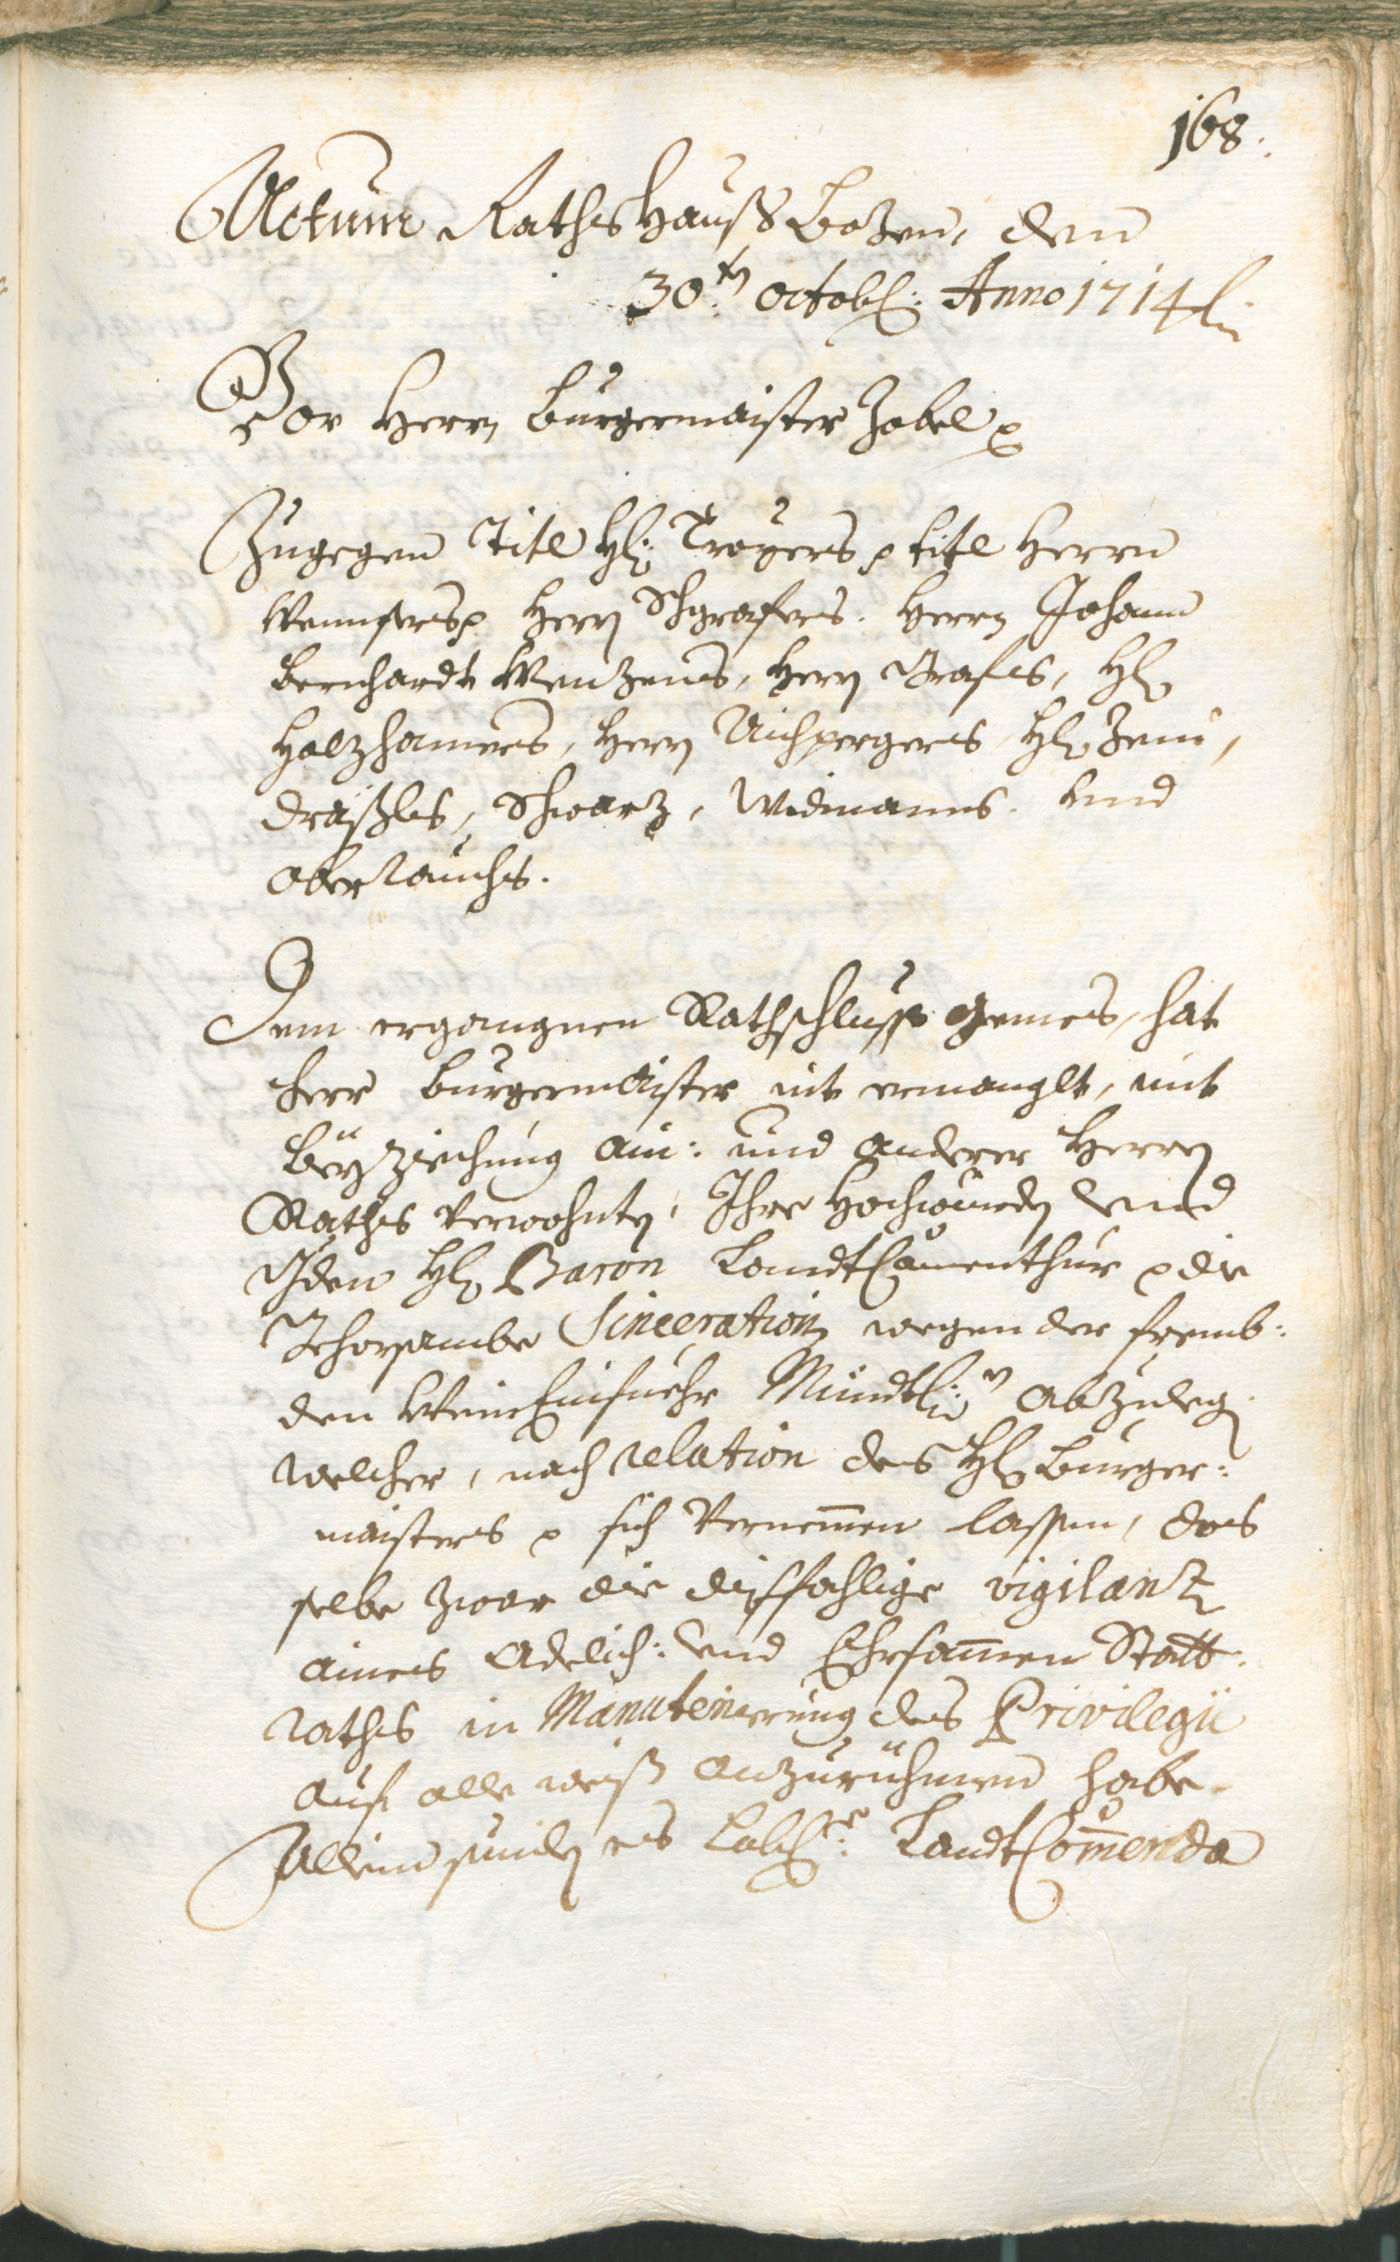 168.
Actum Rathshauß Bozen, den
30.tn octob: Anno 1714
Vor Herrn Burgermaister Zobel p
Zugegen Titl H: Troyers p titl Herrn
Wenfers p Herrn Schgrafers. Herrn Johann
Bernhardt Wenzens, Herrn Grafens, H:
Holzhamers, Herrn Aichpergers H: Zeni,
Dräxls, Schwarz, Widmanns. Und
Oberrauchs.
Dem ergangnen Rathschluss gemes, hat
Herr Burgermaister nit ermanglt, mit
Beyziechung ain: und anderer Herrn
Raths verwohnten, Ihre Hochwürden und
H: Baron LandtComenthur p die
Gehorsambe Sinceration wegen der fremb:
den WeinEinfuehr Mündtl: abzulegen
welcher, nach relation des H: Burger:
maisters p sich Vernemmen lassen, das
selbe zwar die dissfahlige vigilanz
aines Adelich: und Ehrsammen Statt
raths in Manutenierung des Privilegii
auf alle weiß anzurühmen habe.
Allein seinden es Lobl: LandtCommenda